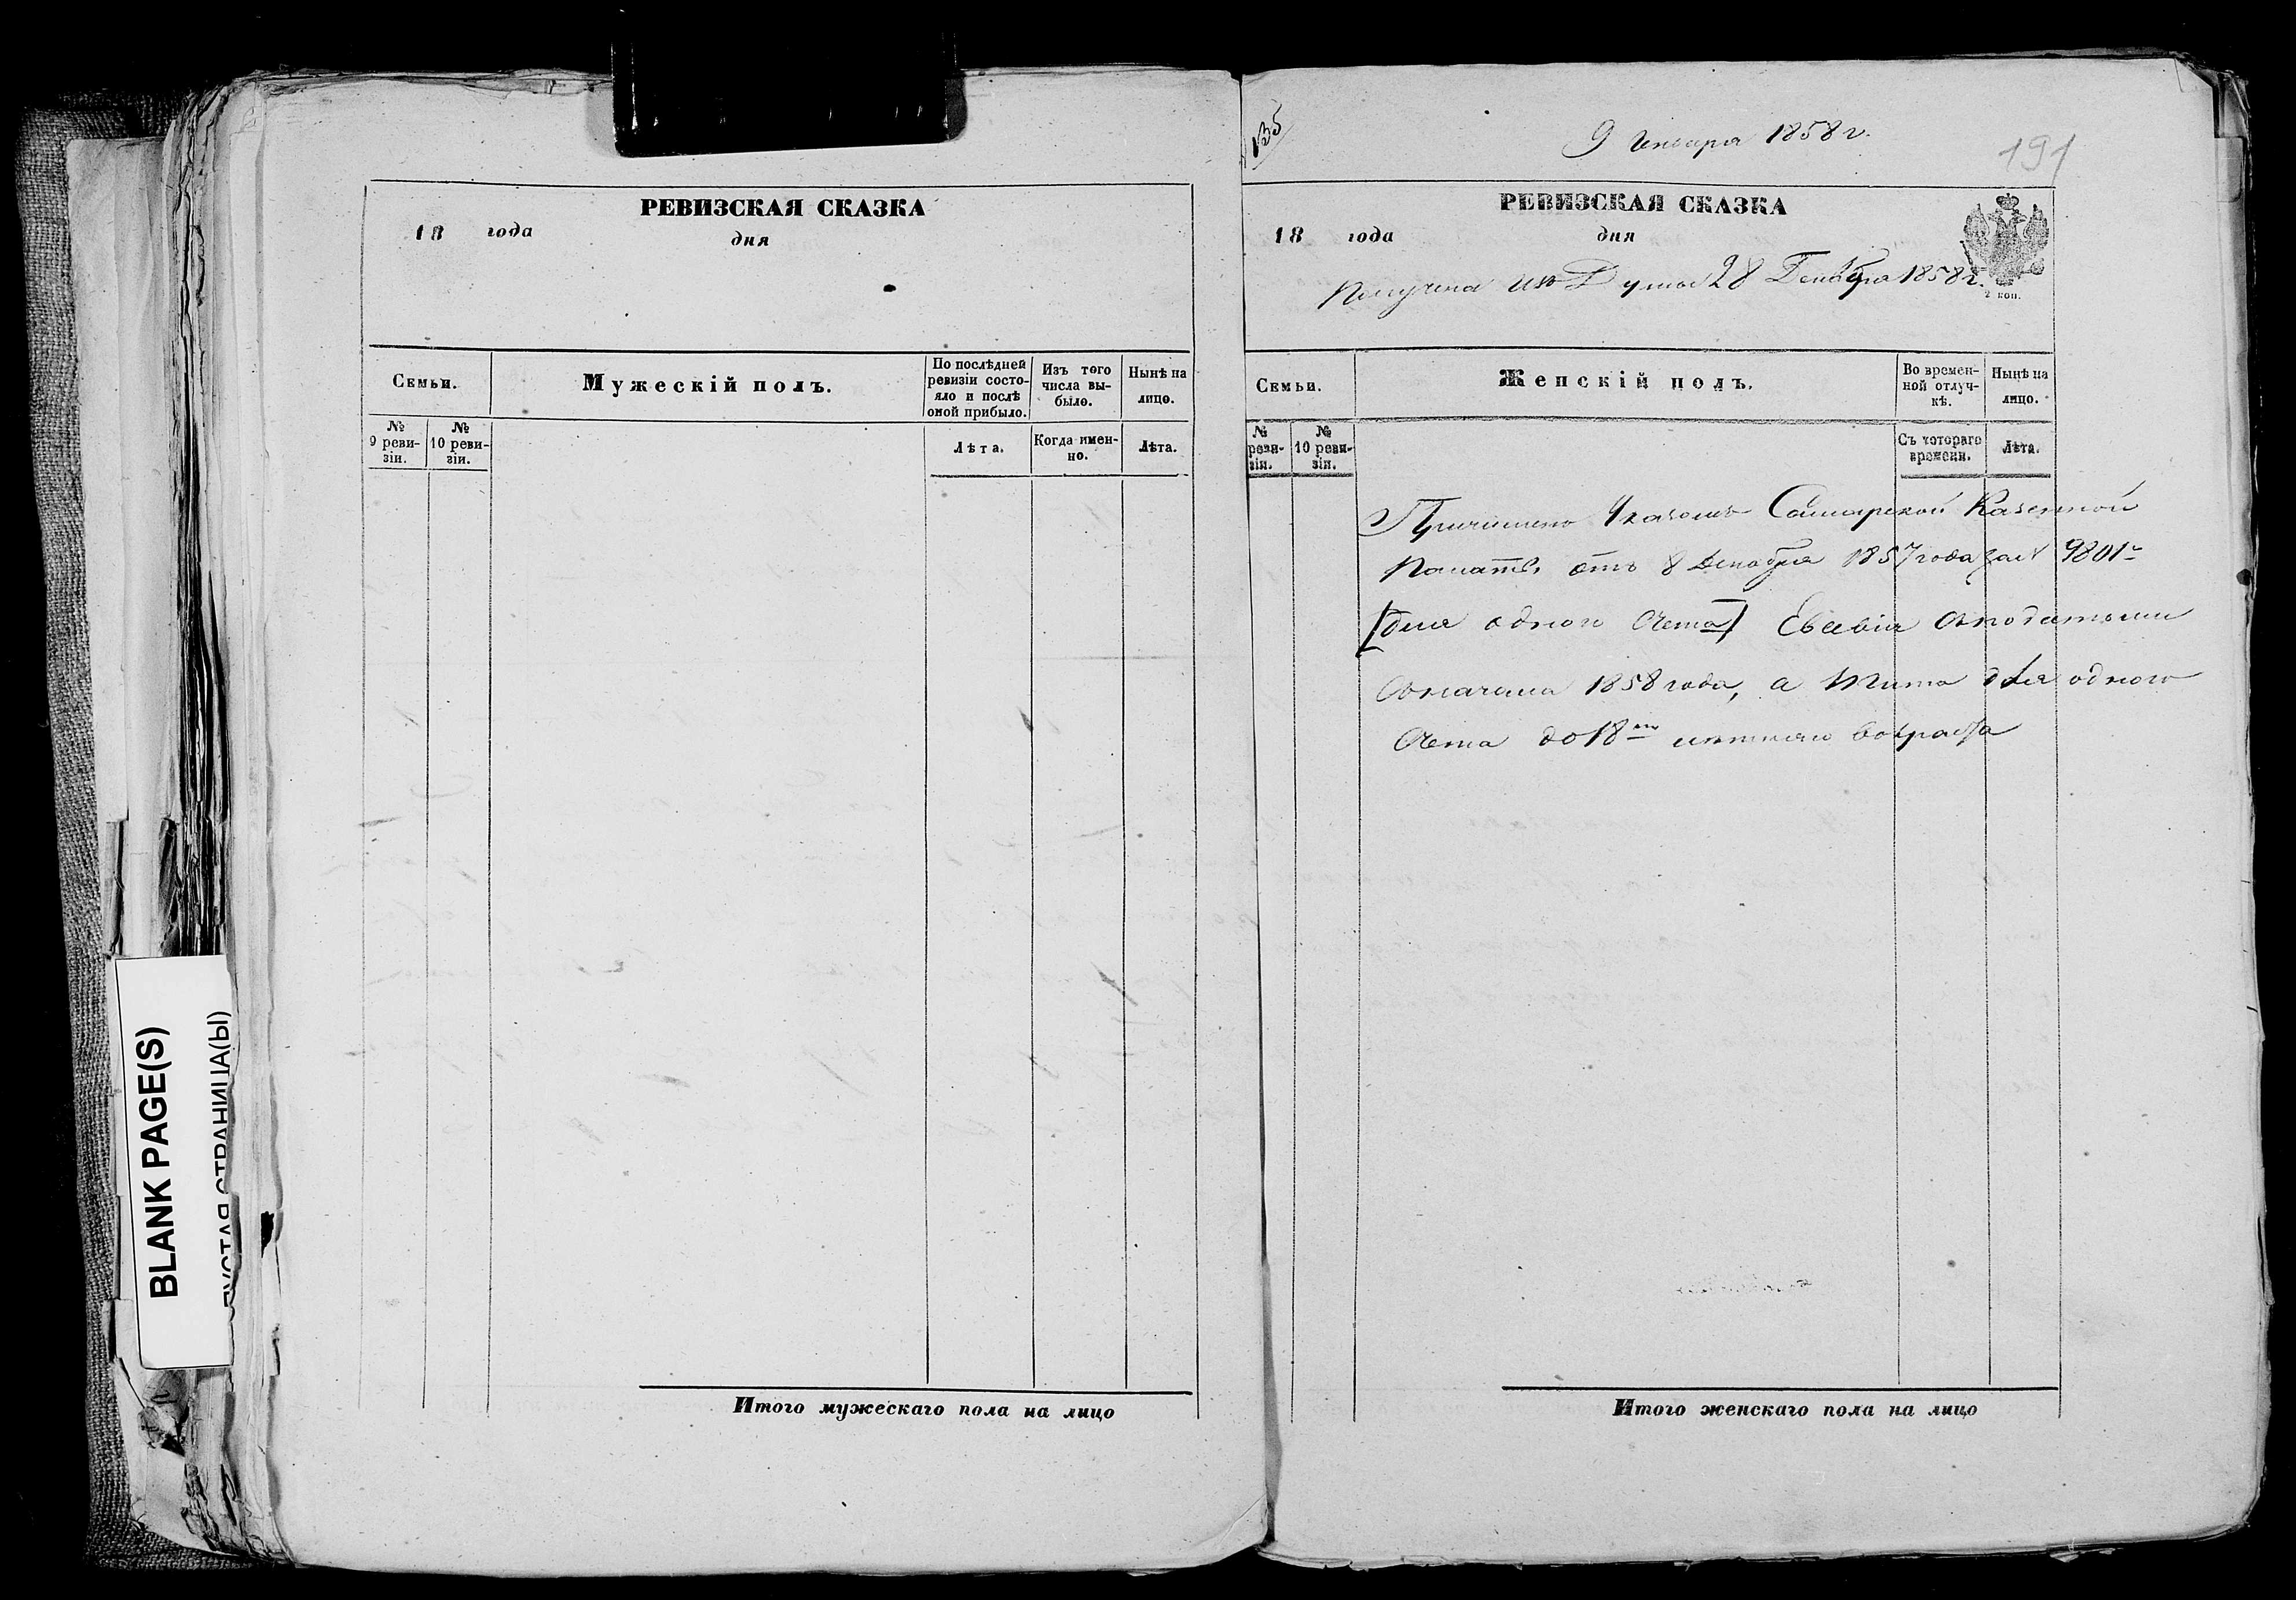 BLANK PAGE(S)
ПУСТАЯ СТРАНИЦА(Ы)
РЕВИЗСКАЯ СКАЗКА
18 года дня
Семьи.
Мужескій полъ.
По послѣдней ревизіи состо-
яло и послѣ оной прибыло.
Изъ того числа вы-
было.
Нынѣ на лицо.
№ 9 реви-
зіи.
№ 10 реви-
зіи.
Лѣта.
Когда имен-
но.
Лѣта.
Итого мужескаго пола на лицо
135
9 Января 1858 г.
191
РЕВИЗСКАЯ СКАЗКА
18 года дня
2 коп.
Получена изъ Думы 28 Декабря 1858 г.
Семьи.
Женскій полъ.
Во времен-
ной отлуч-
кѣ.
Нынѣ на лицо.
№ реви-
зіи.
№ 10 реви-
зіи.
Съ котораго времени.
Лѣта.
Причислено Указомъ Самарской Казенной
Палаты отъ 8 Декабря 1857 года за № 9801
[для одного счета] съподатьми
съначала 1858 года, а Тита для одного
счета до 18 лѣтняго возраста
Итого женскаго пола на лицо